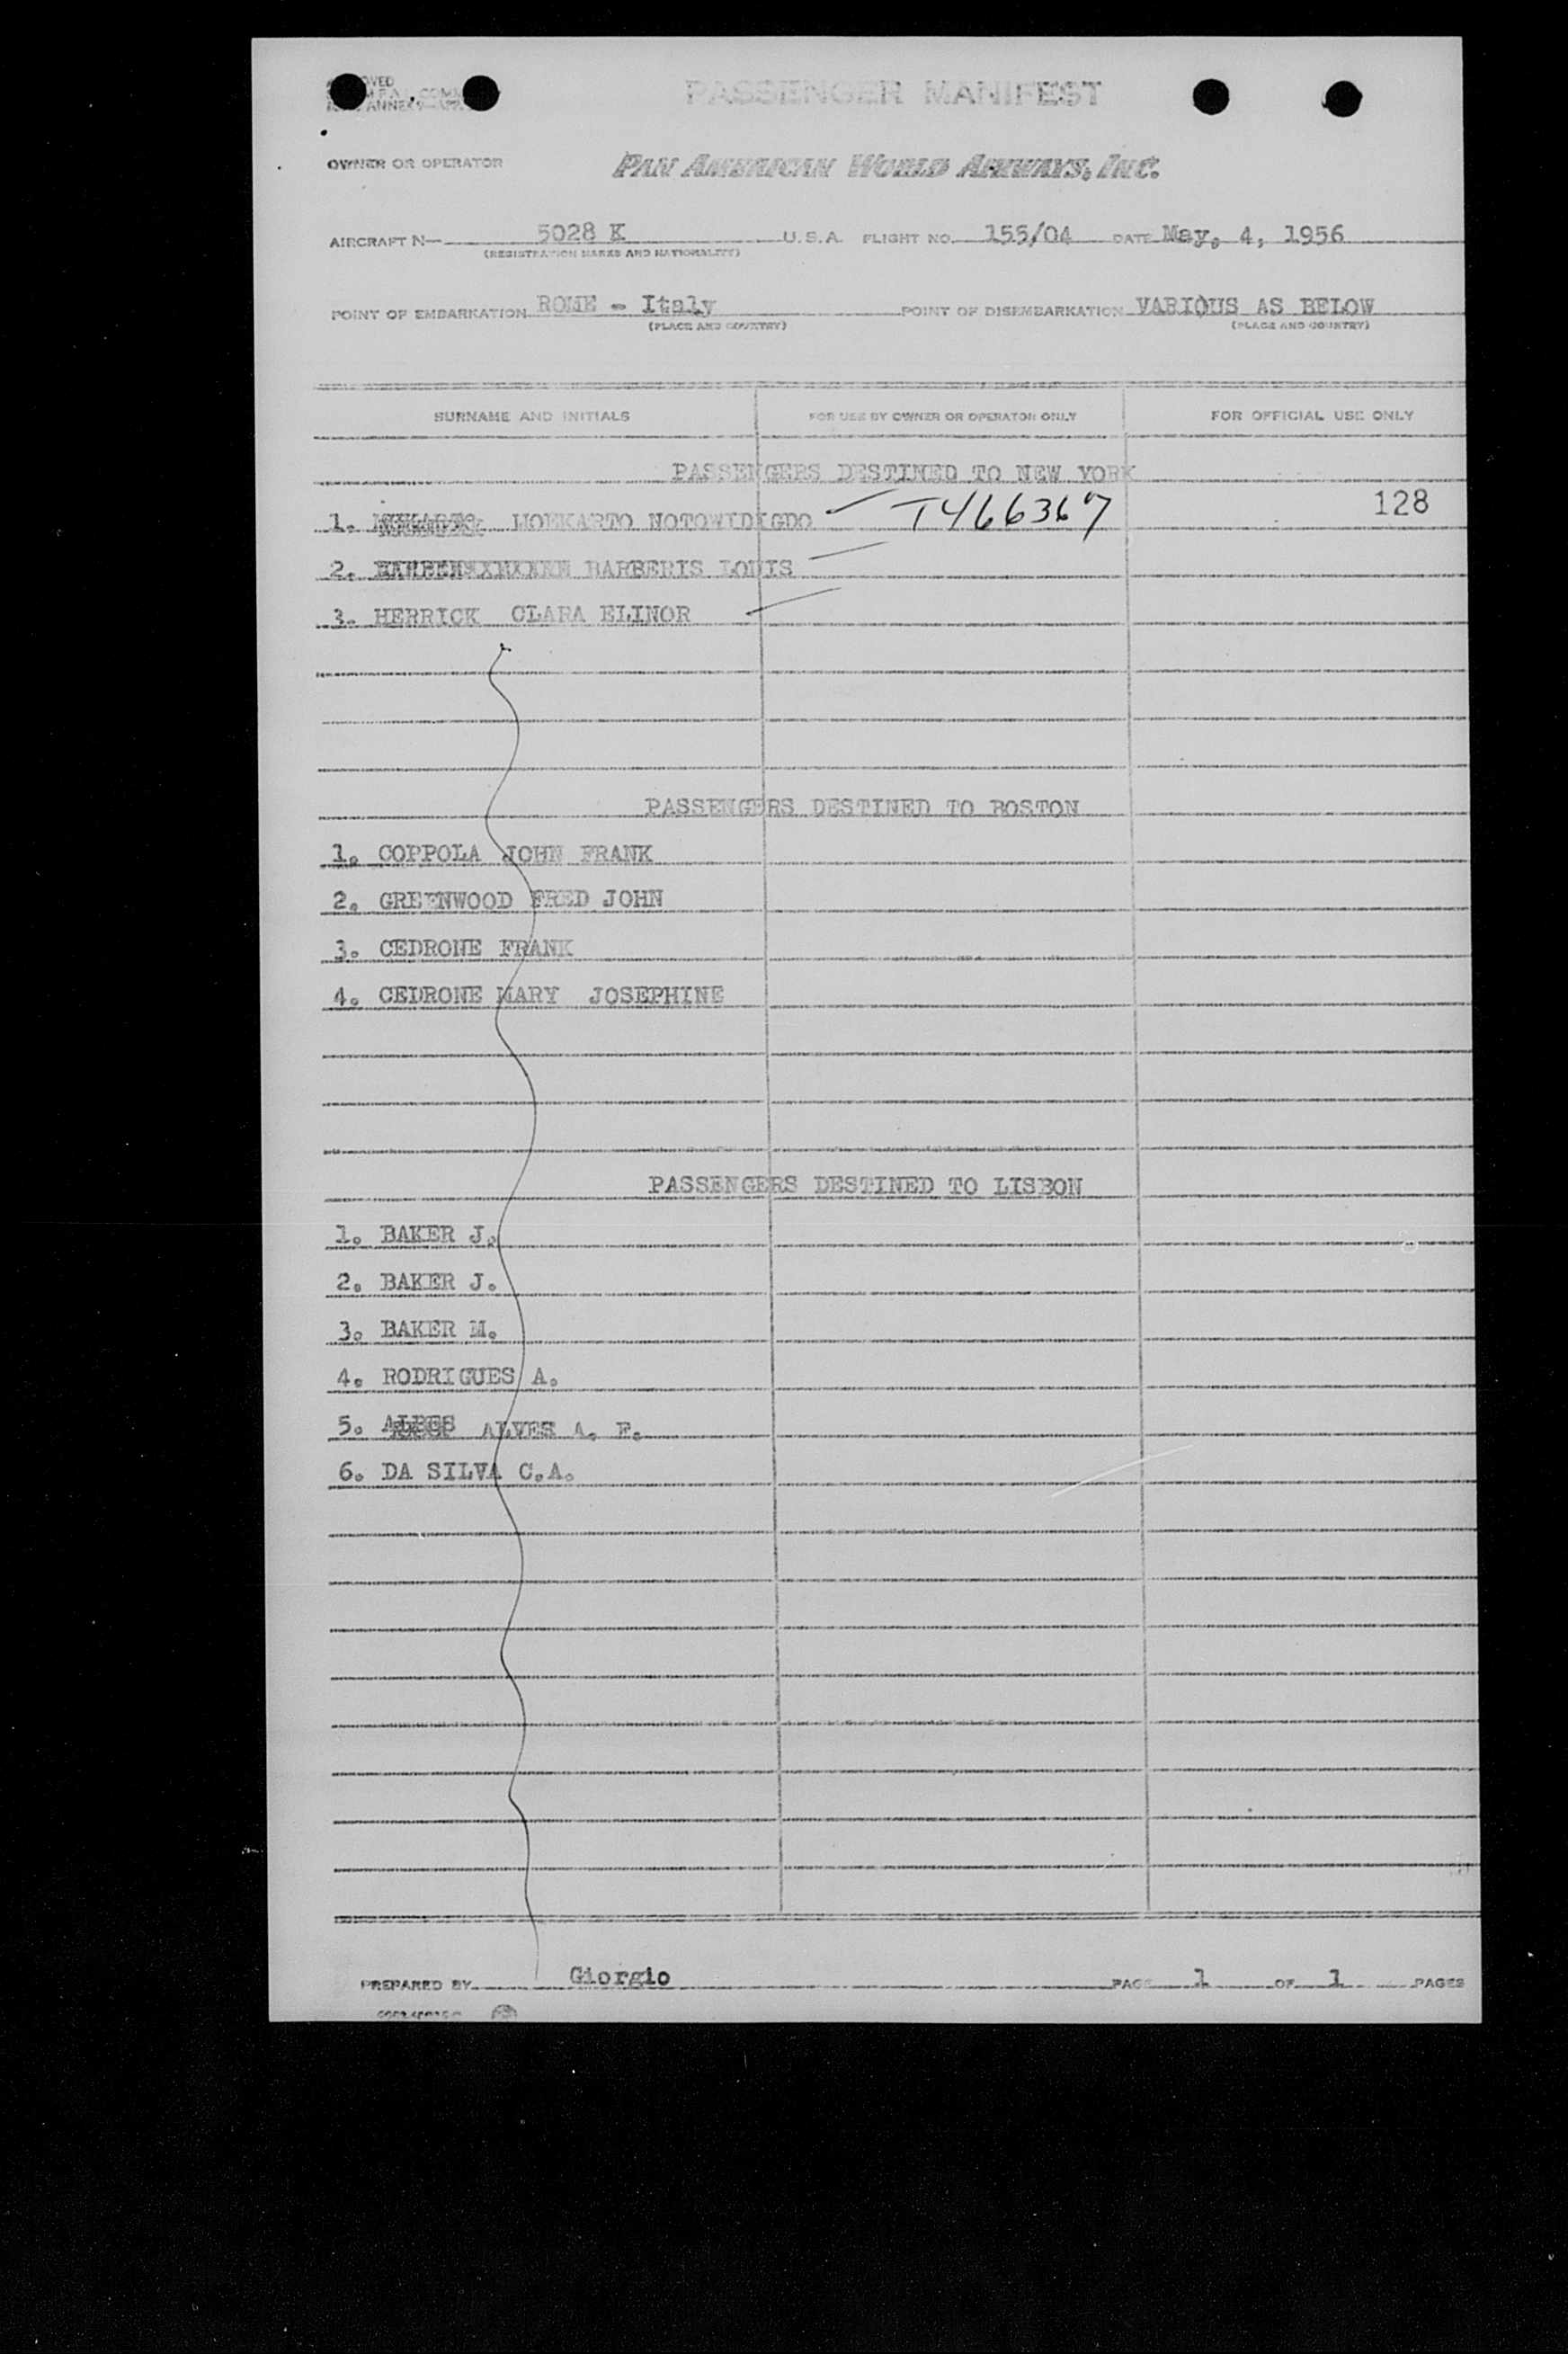 PASSENGER MANIFEST
OWNER OR OPERATOR PAN AMERICAN WORLD AIRWAYS, INC.
AIRCRAFT N— 5028 K U.S.A. FLIGHT NO. 155/04 DATE May, 4, 1956
(REGISTRATION MARKS AND NATIONALITY)
POINT OF EMBARKATION ROME - Italy POINT OF DISEMBARKATION VARIOUS AS BELOW
(PLACE AND COUNTRY) (PLACE AND COUNTRY)
SURNAME AND INITIALS FOR USE BY OWNER OR OPERATOR ONLY FOR OFFICIAL USE ONLY
PASSENGERS DESTINED TO NEW YORK
1. MOEKARTO NOTOWIDIGDO T466367 128
2. BARBERIS LOUIS
3. HERRICK CLARA ELINOR
PASSENGERS DESTINED TO BOSTON
1. COPPOLA JOHN FRANK
2. GREENWOOD FRED JOHN
3. CEDRONE FRANK
4. CEDRONE MARY JOSEPHINE
PASSENGERS DESTINED TO LISBON
1. BAKER J.
2. BAKER J.
3. BAKER M.
4. RODRIGUES A.
5. ALVES A. F.
6. DA SILVA C.A.
PREPARED BY Giorgio PAGE 1 OF 1 PAGES